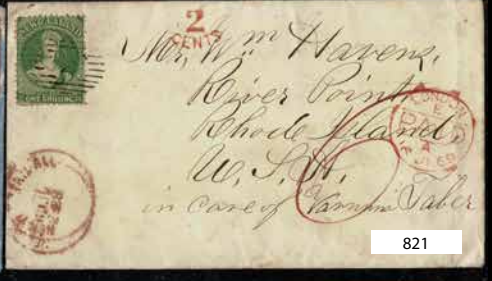 NEW ZEALAND
ONE SHILLING
2
CENTS
Mr. Wm Havens,
River Point
Rhode Island,
U.S.A.
in care of Varnum Taber
LONDON
PAID
69
ALL
821